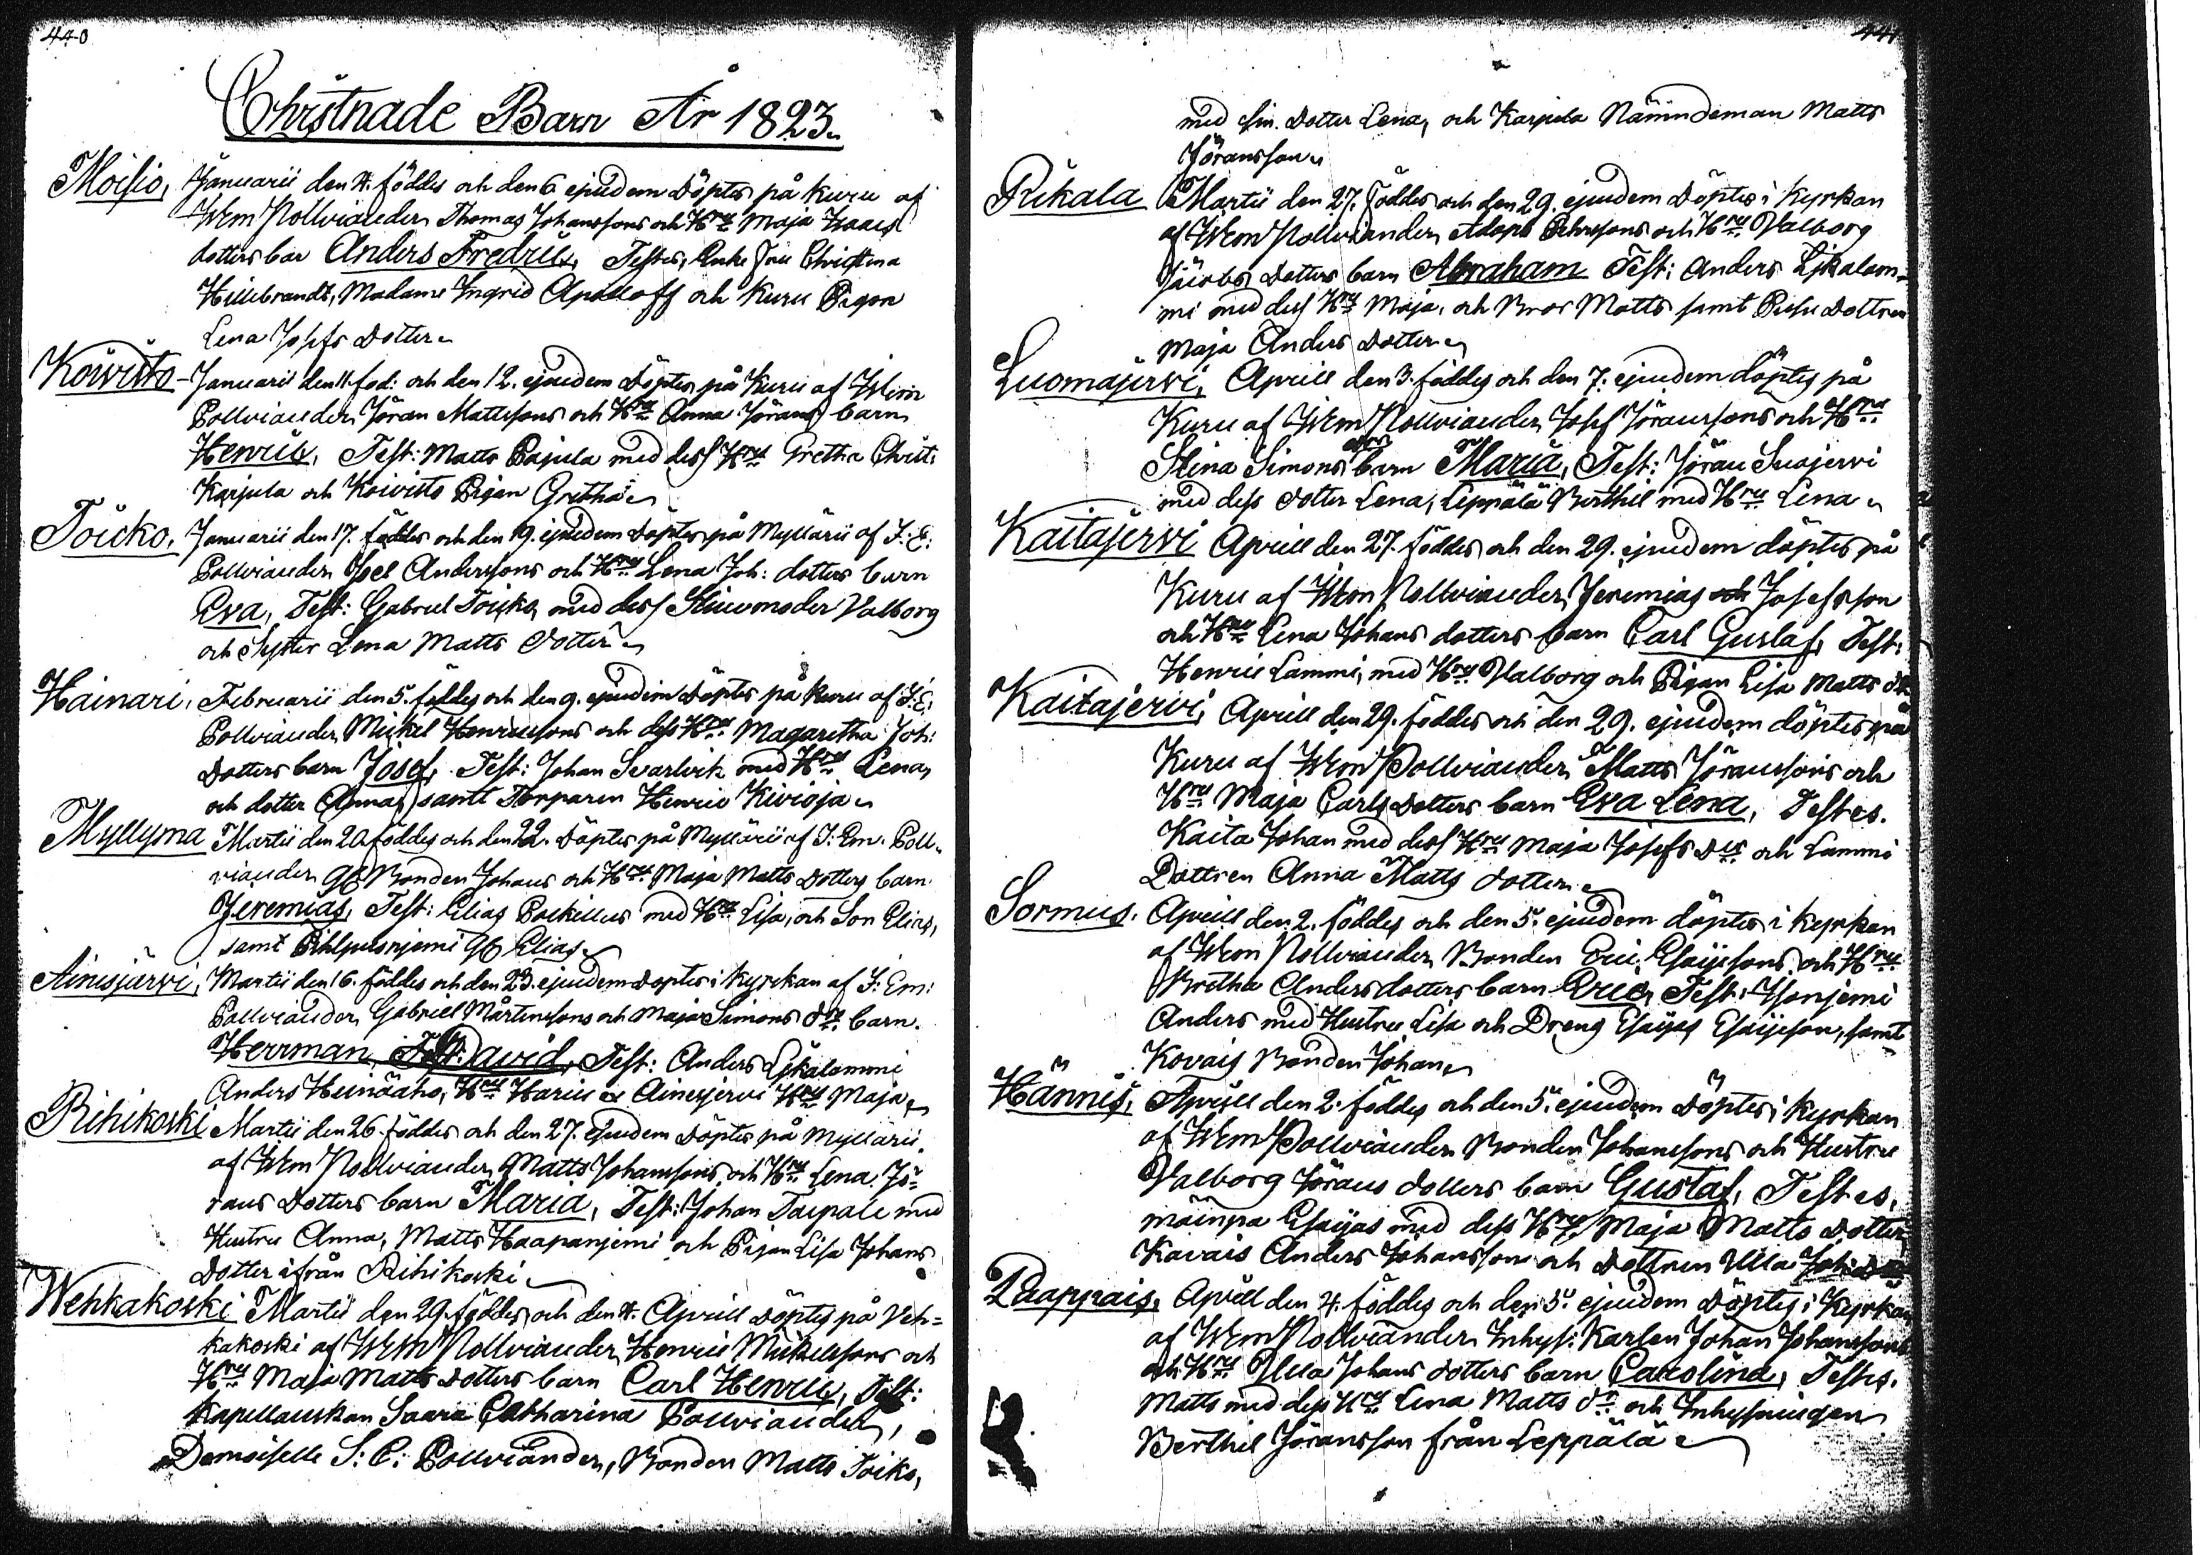 440
Christnade Barn År 1823.
Moisio, Januarii den 4. föddes och den 6 ejusdem Döptes på Kuru af
Wem Pollviander, Thomas Johanssons och Hru Maja Isaacs
dotters bar Anders Fredric, Testes, Enke Fru Christina
Hillebrandt, Madame Ingrid Apolloff och Kuru Pigan
Lena Josefs Dotter
Koivisto Januarii den 11. föd: och den 12. ejusdem Döptes på Kuru af Wem
Pollviander, Jöran Mattssons och Hru Anna Jörans barn
Henric, Test: Matts Pajula med dess Hru Gretha Christ:
Karjula och Koivisto Pigan Gretha
Toicko, Januarii den 17. föddes och den 19. ejusdem Döptes på Myllärii af I: E:
Pollviander, Anderssons och Hru Lena Joh: dotters barn
Eva, Test: Gabriel Toicko, med dess Stiuvmoder Valborg
och Syster Lena Matts Dotter
Hainari, Februarii den 5. föddes och den 9. ejusdem Döptes på Kuru af I: E:
Pollviander, Mickel Henricssons och dess Hru Magaretha Joh:
Dotters barn Josef, Test: Johan Svarlvik med Hru Lena,
och dotter Anna, samt Torparen Henric Kivioja
Myllymä Martii den 20 föddes och den 22. Döptes på Myllärii af I: Em: Poll-
viander, Bonden Johans och Hru Maja Matts Dotters barn
Jeremias, Test: Elias Pockillus med Hru Lisa, och Son Elias,
samt Elias
Ainesjärvi, Martii den 16. föddes och den 23. ejusdem Döptes i Kyrckan af I: Em:
Pollviander, Gabriel Mårtenssons och Maja Simons dr barn
Herrman David, Test: Anders Ljkalammi
Anders Heinöaho, Hru och Ainesjervi Hru Maja
Rihikoski Martii den 26. föddes och den 27. ejusdem Döptes på Myllärii
af Wem Pollviander, Matts Johanssons, och Hru Lena Jö-
rans Dotters barn Maria, Test: Johan Taipale med
Hustru Anna, Matts Haapanjemi och Pigan Lisa Johans
Dotter ifrån Rihikoski
Wehkakoski Martii den 29. föddes och den 4. Aprill Döptes på Veh-
kakoski af Wem Pollviander, Henric Mickelssons och
Hru Maja Matts Dotters barn Carl Henric, Test:
Kapellanskan Saara Catharina Pollviander,
Demoiselle S: C: Pollviander, Bonden Matts Toiko,
441
med sin Dotter Lena, och Karjula Nämndeman Matts
Jöransson
Rikala Martii den 27. föddes och den 29. ejusdem Döptes i Kyrkan
af Wem Pollviander, Adam Pehrssons och Hru Valborg
Jacobs Dotters barn Abraham Test: Anders Ljkalam-
mi med dess Hru Maja, och Bror Matts samt Dottren
Maja Anders Dotter
Luomajervi, Aprill den 3. föddes och den 7. ejusdem döptes på
Kuru af Wem Pollviander, Josef Jöranssons och Hru
Stina Simons barn Maria, Test: Jöran Suojervi
med dess Dotter Lena, Leppälä Berthil med Hru Lena
Kaitajervi Aprill den 27. föddes och den 29. ejusdem döptes på
Kuru af Wem Pollviander, Jeremias och Josefsson
och Hru Lena Johans dotters barn Carl Gustaf, Test:
Henric Lammi, med Hru Valborg och Pigan Lisa Matts dr
Kaitajervi, Aprill den 29. föddes och den 29. ejusdem döptes på
Kuru af Wem Pollviander, Matts Jöranssons och
Hru Maja Carls Dotters barn Eva Lena, Testes.
Kaita Johan med dess Hru Maja Josefs Dr och Lammi
Dottren Anna Matts dotter
Sormus, Aprill den 2. föddes och den 5. ejusdem döptes i Kyrkan
af Wem Pollviander, Bonden Eric Esaijssons och Hru
Bretha Anders dotters barn Eric, Test: Honjemi
Anders med Hustru Lisa och Dreng Esaijas Esaijsson, samt
Kovais Bonden Johan
Hännis, Aprill den 2. föddes och den 5. ejusdem Döptes i Kyrkan
af Wem Pollviander, Bonden Johanssons och Hustru
Valborg Jörans dotters barn Gustaf, Testes,
mäinpa Esaijas med dess Hru Maja Matts Dotter,
Kavais Anders Johansson och Dottren Ulla Joh:
Paappais, Aprill den 4. föddes och den 5. ejusdem Döptes i Kyrkan
af Wem Pollviander Inhys: Karlen Johan Johanssons
och Hru Ulla Johans dotters barn Carolina, Testes.
Matts med dess Hru Lena Matts dr och Inhysningen
Berthil Jöransson från Leppälä